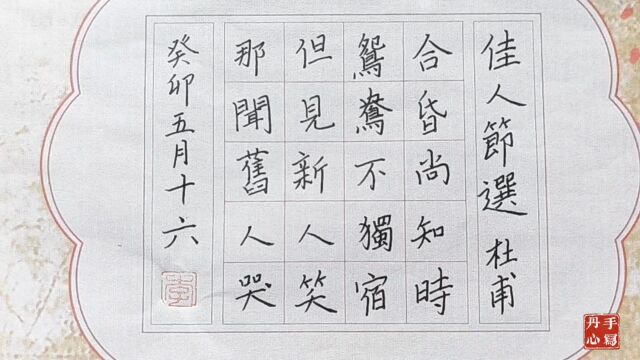 佳人節選 杜甫
合昏尚知時
鴛鴦不獨宿
但見新人笑
那聞舊人哭
癸卯五月十六
李
手寫
丹心